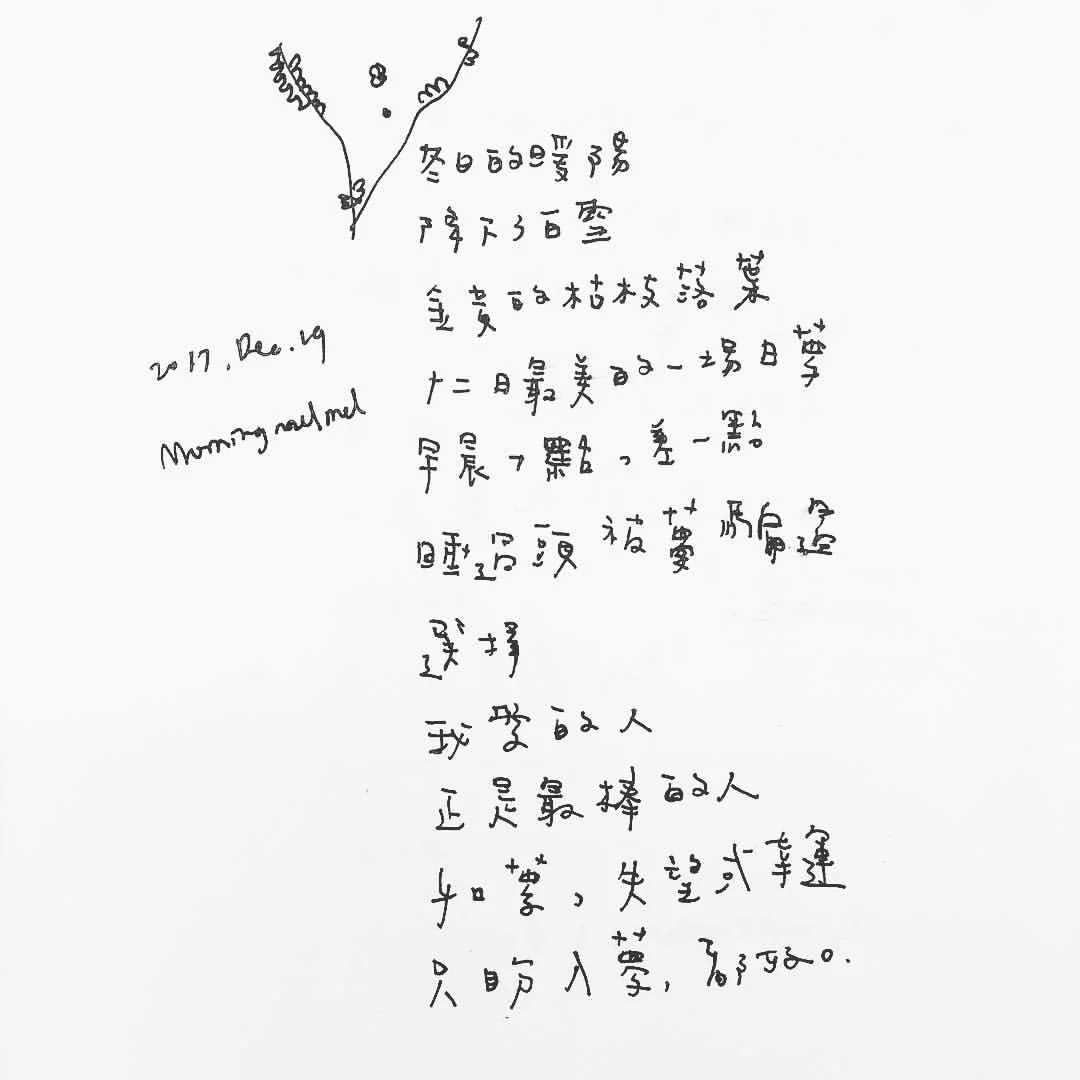 冬日的暖陽
降下了白雪
金黃的枯枝落葉
十二日最美的一場日夢
早晨7點,差一點
睡過頭 被夢騙走
選擇
我愛的人
正是最棒的人
和夢,失望或幸運
只盼入夢,都好。
2017.Dec.19
Morning